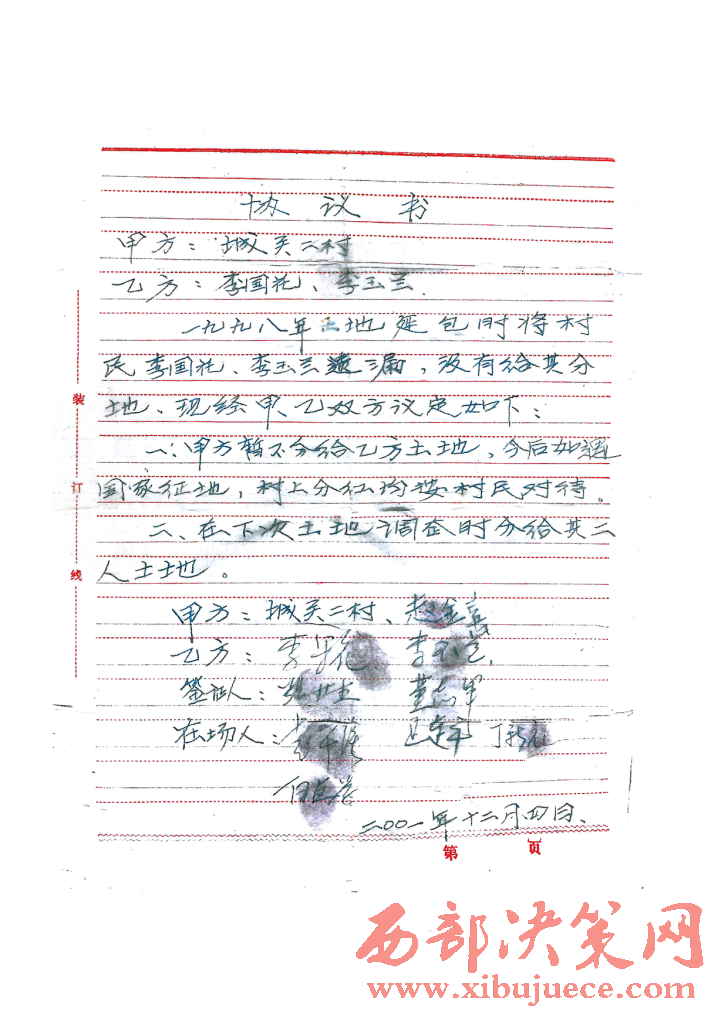 协议书
甲方：城关二村
乙方：李国花、李玉兰.
一九九八年土地延包时将村
民李国花、李玉兰遗漏，没有给其分
地、现经甲、乙双方议定如下：
一：甲方暂不分给乙方土地、今后如遇
国家征地，村上分红均按村民对待。
二、在下次土地调整时分给其二
人土地。
甲方：城关二村、赵金喜
乙方：李国花 李玉兰.
签证人：
在场人：
二00一年十二月四日、
装
订
线
第 页
西部决策网
www.xibujuece.com